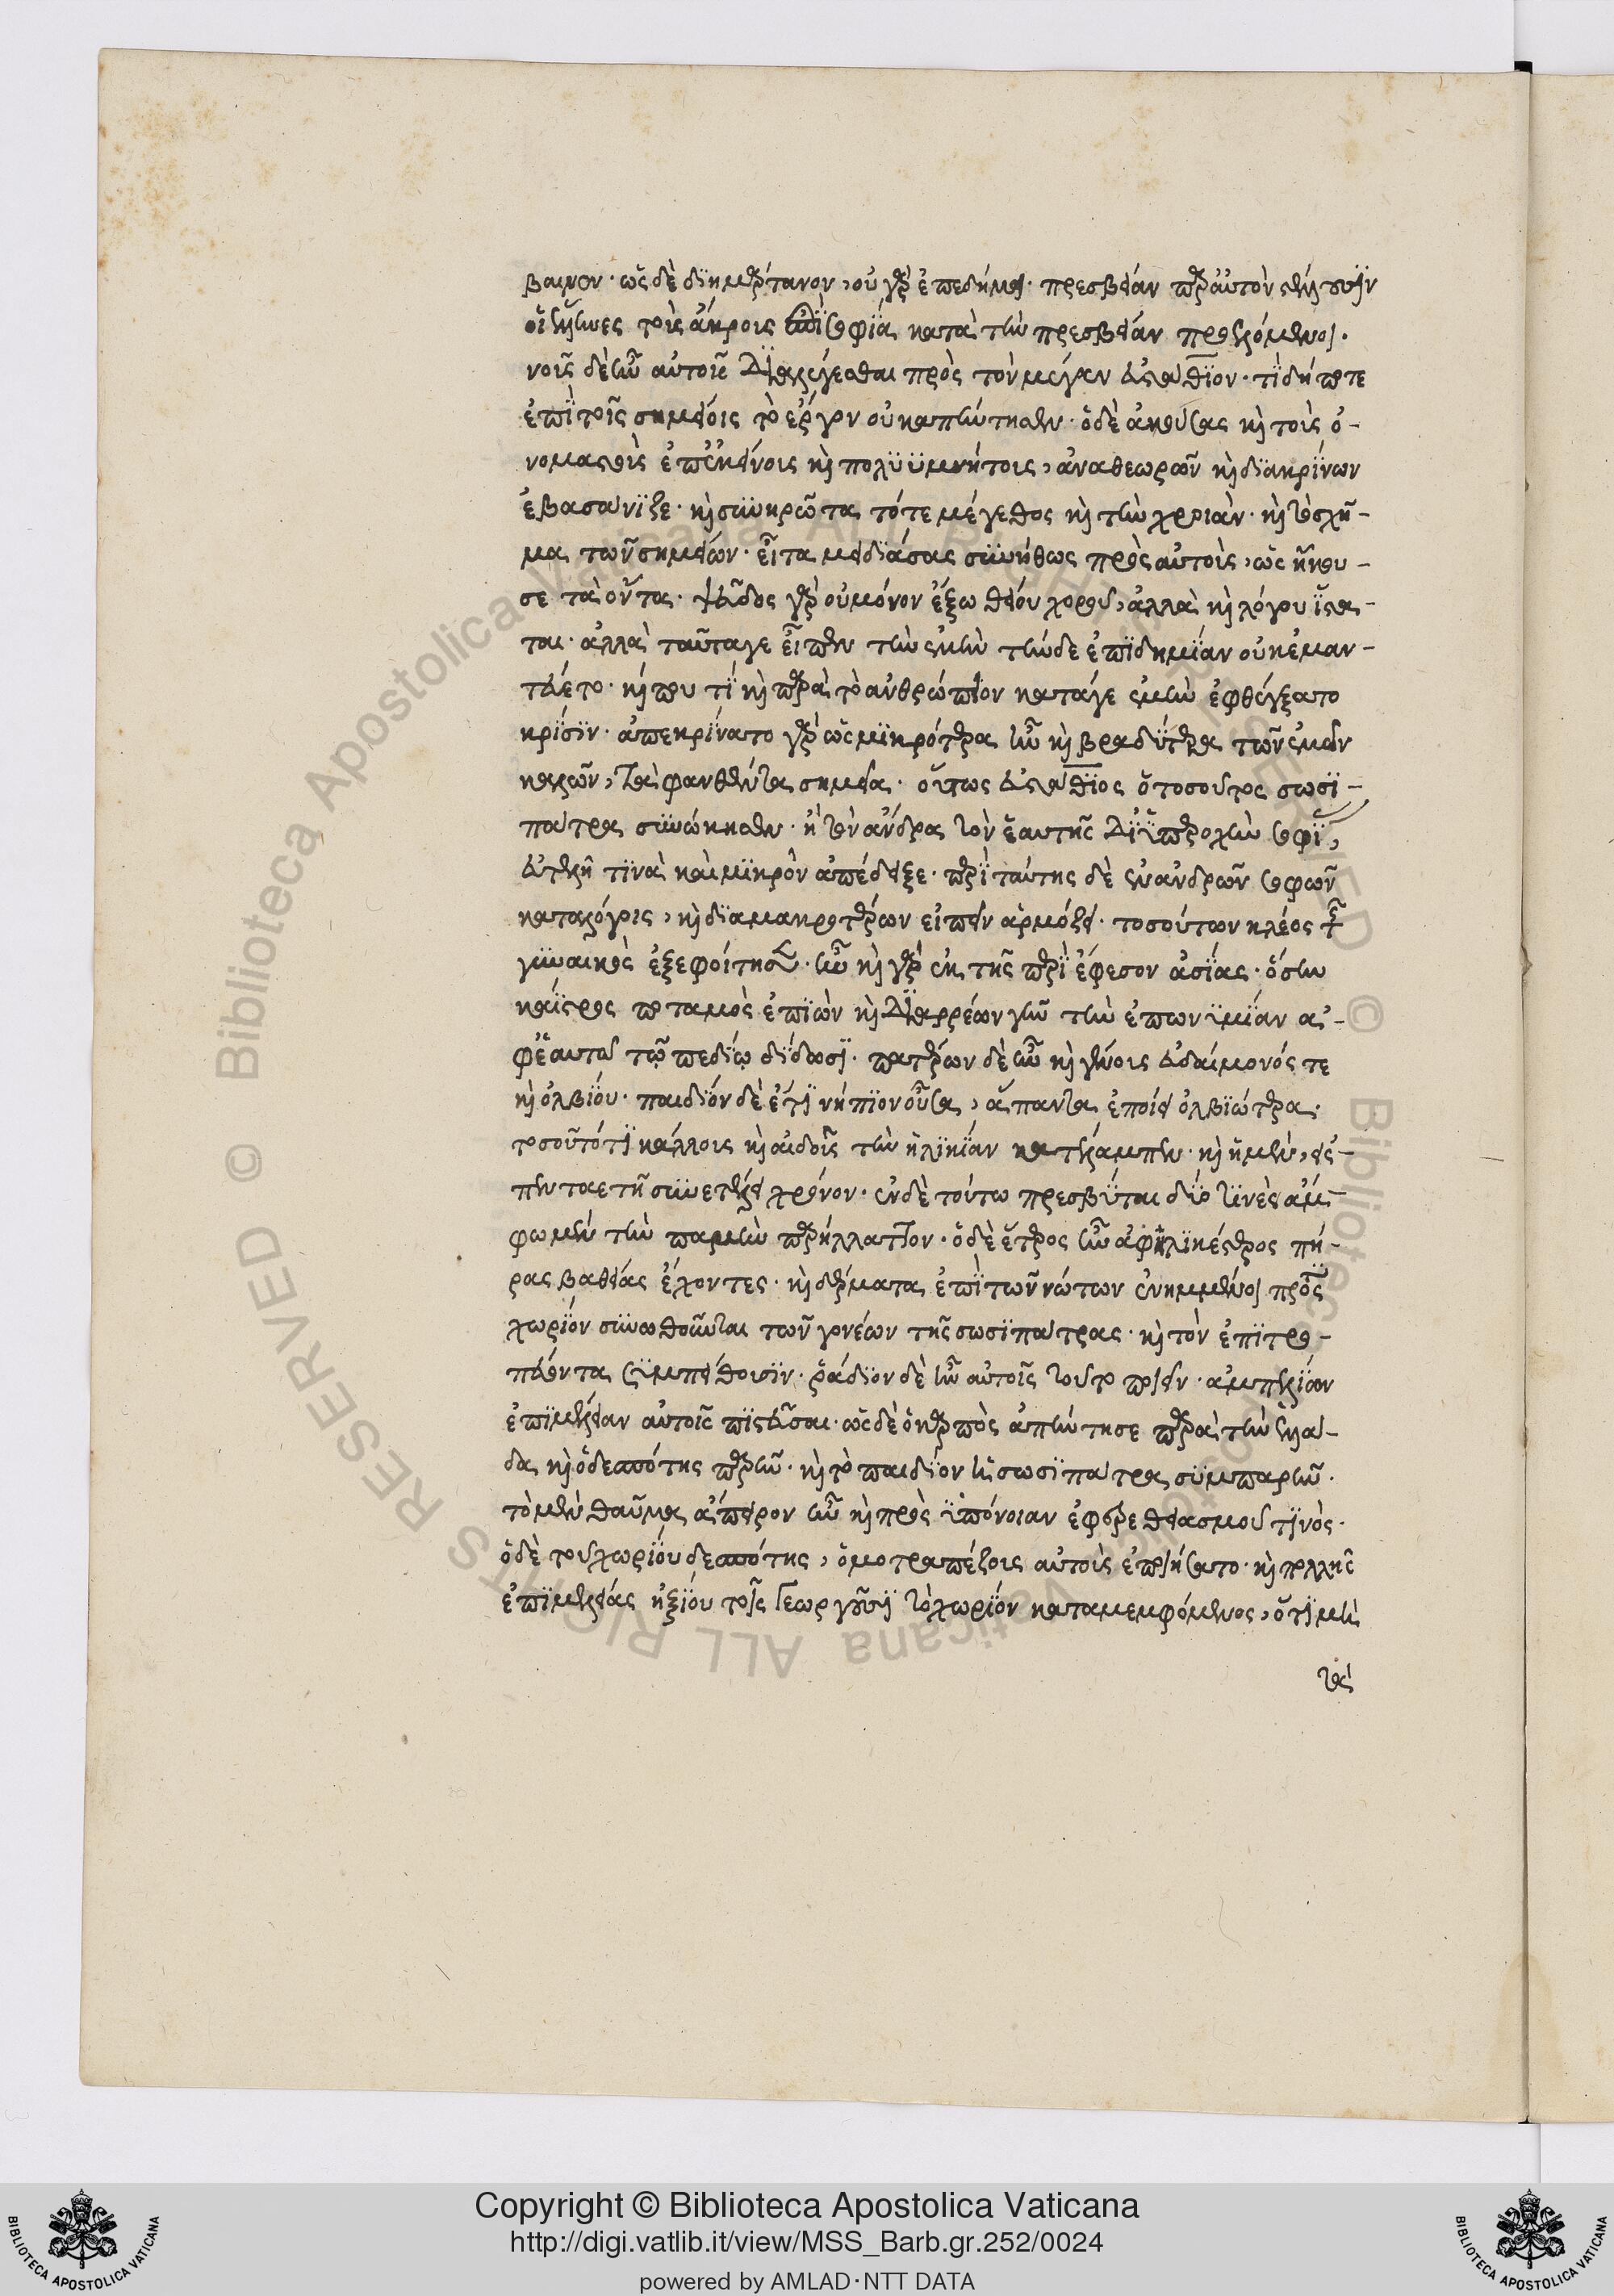 βαινον· ὡς δὲ διημάρτανον, οὐ γὰρ ἐπεδήμει· πρεσβείαν παρ' αὐτὸν στέλλουσιν
τοὺς ἄκρους ἐπὶ σοφίᾳ κατὰ τὴν πρεσβείαν προστησάμενοι·
νοῦς δὲ ἦν αὐτοῖς διαλέγεσθαι πρὸς τὸν μέγαν Εὐστάθιον· τί δήποτε
ἐπὶ τοῖς σημείοις τὸ ἔργον οὐκ ἀπήντησεν· ὁ δὲ ἀκούσας κὶ τοὺς ὀ-
νομαστοὺς ἐπ' ἐκείνοις κὶ πολυϋμνήτοις, ἀναθεωρῶν κὶ διακρίνων
ἐβασάνιζε· κὶ συνηρώτα τό τε μέγεθος κὶ τὴν χροιὰν· κὶ τὸ σχῆ-
μα τῶν σημείων· εἶτα μειδιάσας συνήθως πρὸς αὐτοὺς, ὡς ἤκου-
σε τὰ ὄντα· ψεῦδος γὰρ οὐ μόνον ἔξω θείου χοροῦ, ἀλλὰ κὶ λόγου ἵστα-
ται· ἀλλὰ ταῦτά γε εἶπεν τὴν ἐμὴν τήνδε ἐπιδημίαν οὐκ ἐμαν-
τεύετο· κή που τί κὶ παρὰ τὸ ἀνθρώπιον κατά γε ἐμὴν ἐφθέγξατο
κρίσιν· ἀπεκρίνατο γὰρ ὡς μικρότερα ἦν κὶ βραδύτερα τῶν ἐμῶν
καλῶν, τὰ φανθέντα σημεῖα· οὕτως Εὐστάθιος ὁ τοσοῦτος Σωσι-
πάτρᾳ συνώκησεν· ἣ τὸν ἄνδρα τὸν ἑαυτῆς δι' ὑπεροχὴν σοφίας,
εὐτελῆ τινὰ καὶ μικρὸν ἀπέδειξε· περὶ ταύτης δὲ ἐν ἀνδρῶν σοφῶν
καταλόγοις, κὶ διὰ μακροτέρων εἰπεῖν ἁρμόζει· τοσούτων κλέος τῆς
γυναικὸς ἐξεφοίτησεν· ἦν κὶ γὰρ ἐκ τῆς περὶ Ἔφεσον Ἀσίας· ὅσην
Κάϊστρος ποταμὸς ἐπιὼν κὶ διαρρέων τὴν ἐπωνυμίαν ἀ-
φ' ἑαυτοῦ τῷ πεδίῳ δίδωσι· πατέρων δὲ ἦν κὶ γένους εὐδαίμονός τε
κὶ ὀλβίου· παιδίον δὲ ἔτι νήπιον οὖσα, ἅπαντα ἐποίει ὀλβιώτερα·
τοσοῦτό τι κάλλους κὶ αἰδοῦς τὴν ἡλικίαν κατέλαμπεν· κὶ ἡ μὲν, εἰς
πενταετῆ συνετέλει χρόνον· ἐν δὲ τούτῳ πρεσβῦται δύο τινὲς ἄμ-
φω μὲν τὴν παρμὴν παρήλλαττον· ὁ δὲ ἕτερος ἦν ἀφηλικέστερος πή-
ρας βαθείας ἔχοντες· κὶ δέρματα ἐπὶ τῶν νώτων ἐνημμένοι πρὸς
χωρίον συνωθοῦνται τῶν γονέων τῆς Σωσιπάτρας· κὶ τὸν ἐπιτρο-
πεύοντα συμπείθουσιν· ῥάδιον δὲ ἦν αὐτοῖς τοῦτο ποιεῖν· ἀμπελίων
ἐπιμέλειαν αὐτοῖς πιστεῦσαι· ὡς δὲ ὁ καρπὸς ἀπήντησε παρὰ τὴν ἐλπί-
δα κὶ ὁ δεσπότης παρῆν· κὶ τὸ παιδίον ἡ Σωσιπάτρα συμπαρῆν·
τὸ μὲν θαῦμα ἄπειρον ἦν κὶ πρὸς ὑπόνοιαν ἔφερε θειασμοῦ τινὸς·
ὁ δὲ τοῦ χωρίου δεσπότης, ὁμοτραπέζους αὐτοὺς ἐποιήσατο· κὶ πολλῆς
ἐπιμελείας ἠξίου τοῖς γεωργοῦσι τὸ χωρίον καταμεμφόμενος, ὅτι μὴ
τὰ